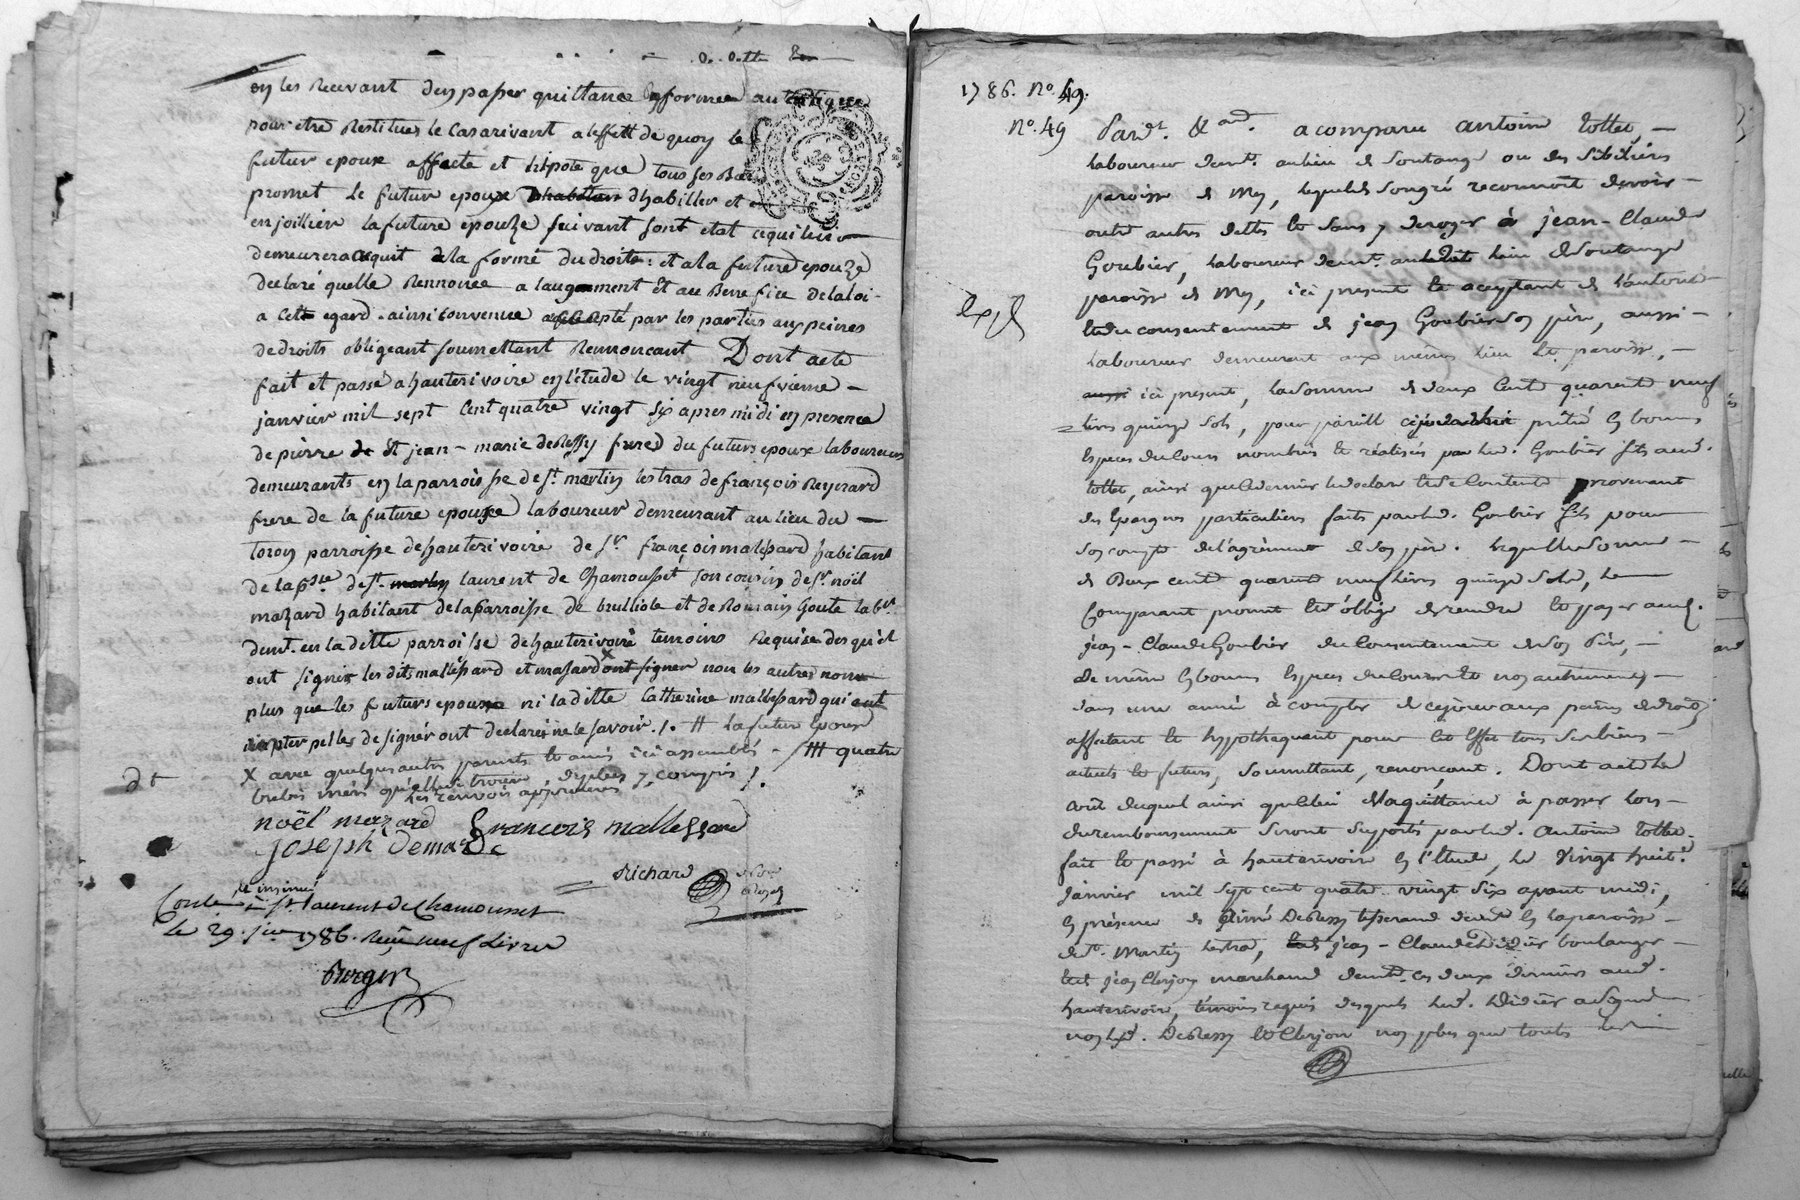 en les Recevant d'en passer quittance en forme autentique
pour etre Restitues le cas arivant a l'effett de quoy le
futur epoux affecte et hipoteque tous ses Biens
promet le futur epoux dhabiller et
enjoillier la future epouze suivant sont etat ce qui lui
demeurera aquit de la forme du droite : et a la future epouze
declaré quelle Rennonce a laugment et au Benefice de la loi
a cett egard . ainsi convenue accepté par les parties aux peines
de droits obligeant soumettant Rennoncant Dont acte
fait et passé a hauterivoire en l'étude le vingt neufvieme
janvier mil sept cent quatre vingt six apres midi en presence
de pierre et jean - marie deRessy frered du futurs epoux laboureurs
demeurants en la parroisse de st. martin lestras de françois Reynard
frere de la future epouze laboureur demeurant au lieu du
toron parroisse de hauterivoire de sr. françois mallessard habitant
de la psse. de st. laurent de Chamousset son cousin de sr. noël
mazard habitant de la Parroisse de brulliole et de Romain Goute labr.
demt. en la ditte parroisse de hauterivoire temoins Requise des quel
ont signer les dits mallessard et masard non les autres non
plus que les futurs epouse ni la ditte Catherine mallessard qui
interpelles de signér ont declarés ne le savoir ./. # la futur Epouse
X avec quelques autres parents et amis ici assemblés - /### quatre
dt
les renvois approuvés
noël mazard françois mallessard
joseph Demarc
Richard
Contle. et insinué
à St. laurent de Chamousset
le 29. jer. 1786. Reçu neuf Livres
Berger
1786. No. 49.
No. 49 Pardt. &and. a comparu antoine tottet,
Laboureur demt. au lieu de Soutange ou des Sibilières
paroisse de Mey, lequel de son gré reconnoit devoir
outre autres dettes et sans y deroger à jean-Claude
Goubier, Laboureur demt. audit lieu de Soutange
paroisse de Mey, ici present et acceptant de l'autorité
Exp.
et du consentement de jean Goubier son père, aussi
Laboureur demeurant aux mêmes lieu et paroisse,
ici present, la somme de deux cent quarente neuf
Livres quinze sols, pour pareille cejourdhui prêté en bonnes
Especes du cours nombrés et réalisés par led. Goubier fils aud.
tottet, ainsi que ce dernier le declare et se contente provenant
des Epargnes particuliers faits par led. Goubier fils pour
son compte de l'agrément de son père. laquelle somme
de Deux cent quarente neuf livres quinze sols, le
Comparant promet et s'oblige de rendre et payer aud.
jean-Claude Goubier du Consentement de son Père,
de même en bonnes Especes du cours et non autrement
dans une année à compter de cejour aux peines de droit
affectant et hypothequant pour cet Effet tous ses biens
actuels et futurs, soumettant, renonçant. Dont acte le
coût duquel ainsi que celui de la quittance à passer lors
du remboursement seront supportés par led. Antoine tottet.
fait et passé à hauterivoire en l'Etude, le Vingt huit.
Janvier mil sept cent quatre vingt six avant midi,
en présence de aimé DeRessy tisserand demt. en la paroisse
de st. Martin lestra, jean-Claude Didier boulanger
et jean Clerjon marchand demt. ces deux derniers aud.
hauterivoire, témoins requis desquels led. Didier a signé
non led. DeRessy et Clerjon non plus que tottet